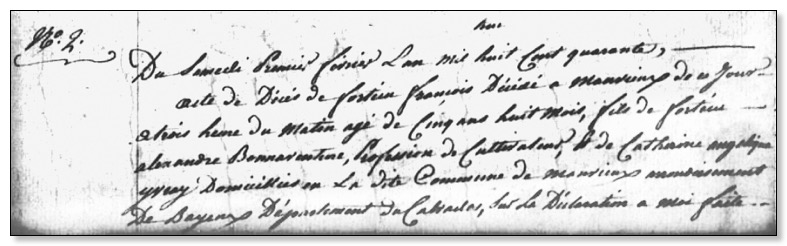 heu
No. 2.
Du Samedi Premier février Lan mil huit Cent quarante,
acte de Décés de fortein françois Décédé a manvieux de ce Jour
atrois heure du matin agé de Cinq ans huit mois, fils de fortein
alexandre Bonnaventure, Profession de Cultivateur, & de Catherine angelique
yvray Domiciliés en La dite Commune de manvieux arondisement
De Bayeux Département du Calvados, sur La Déclaration a moi faite